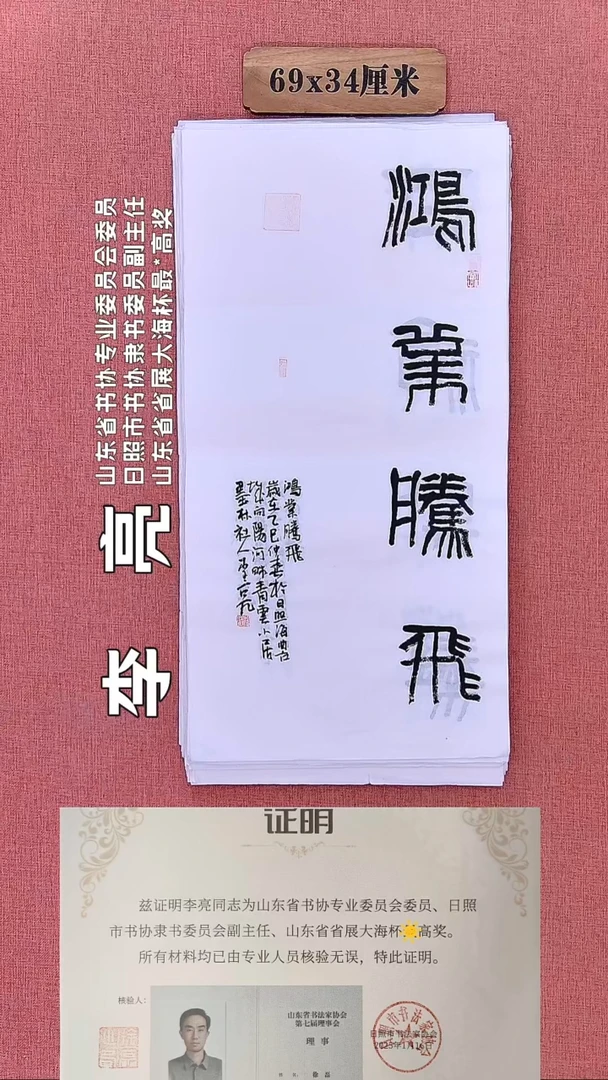 69x34厘米
鸿
業
騰
飛
鴻業騰飛
歲在乙巳仲春於日照海曲
向陽河畔青雲小居
墨林社人李亮
山东省书协专业委员会委员
日照市书协隶书委员副主任
山东省省展大海杯最*高奖
李亮
证明
兹证明李亮同志为山东省书协专业委员会委员、日照
市书协隶书委员会副主任、山东省省展大海杯高奖。
所有材料均已由专业人员核验无误，特此证明。
核验人：
山东省书法家协会
第七届理事会
理事
姓名：徐磊
日照市书法家协会
2025年1月16日